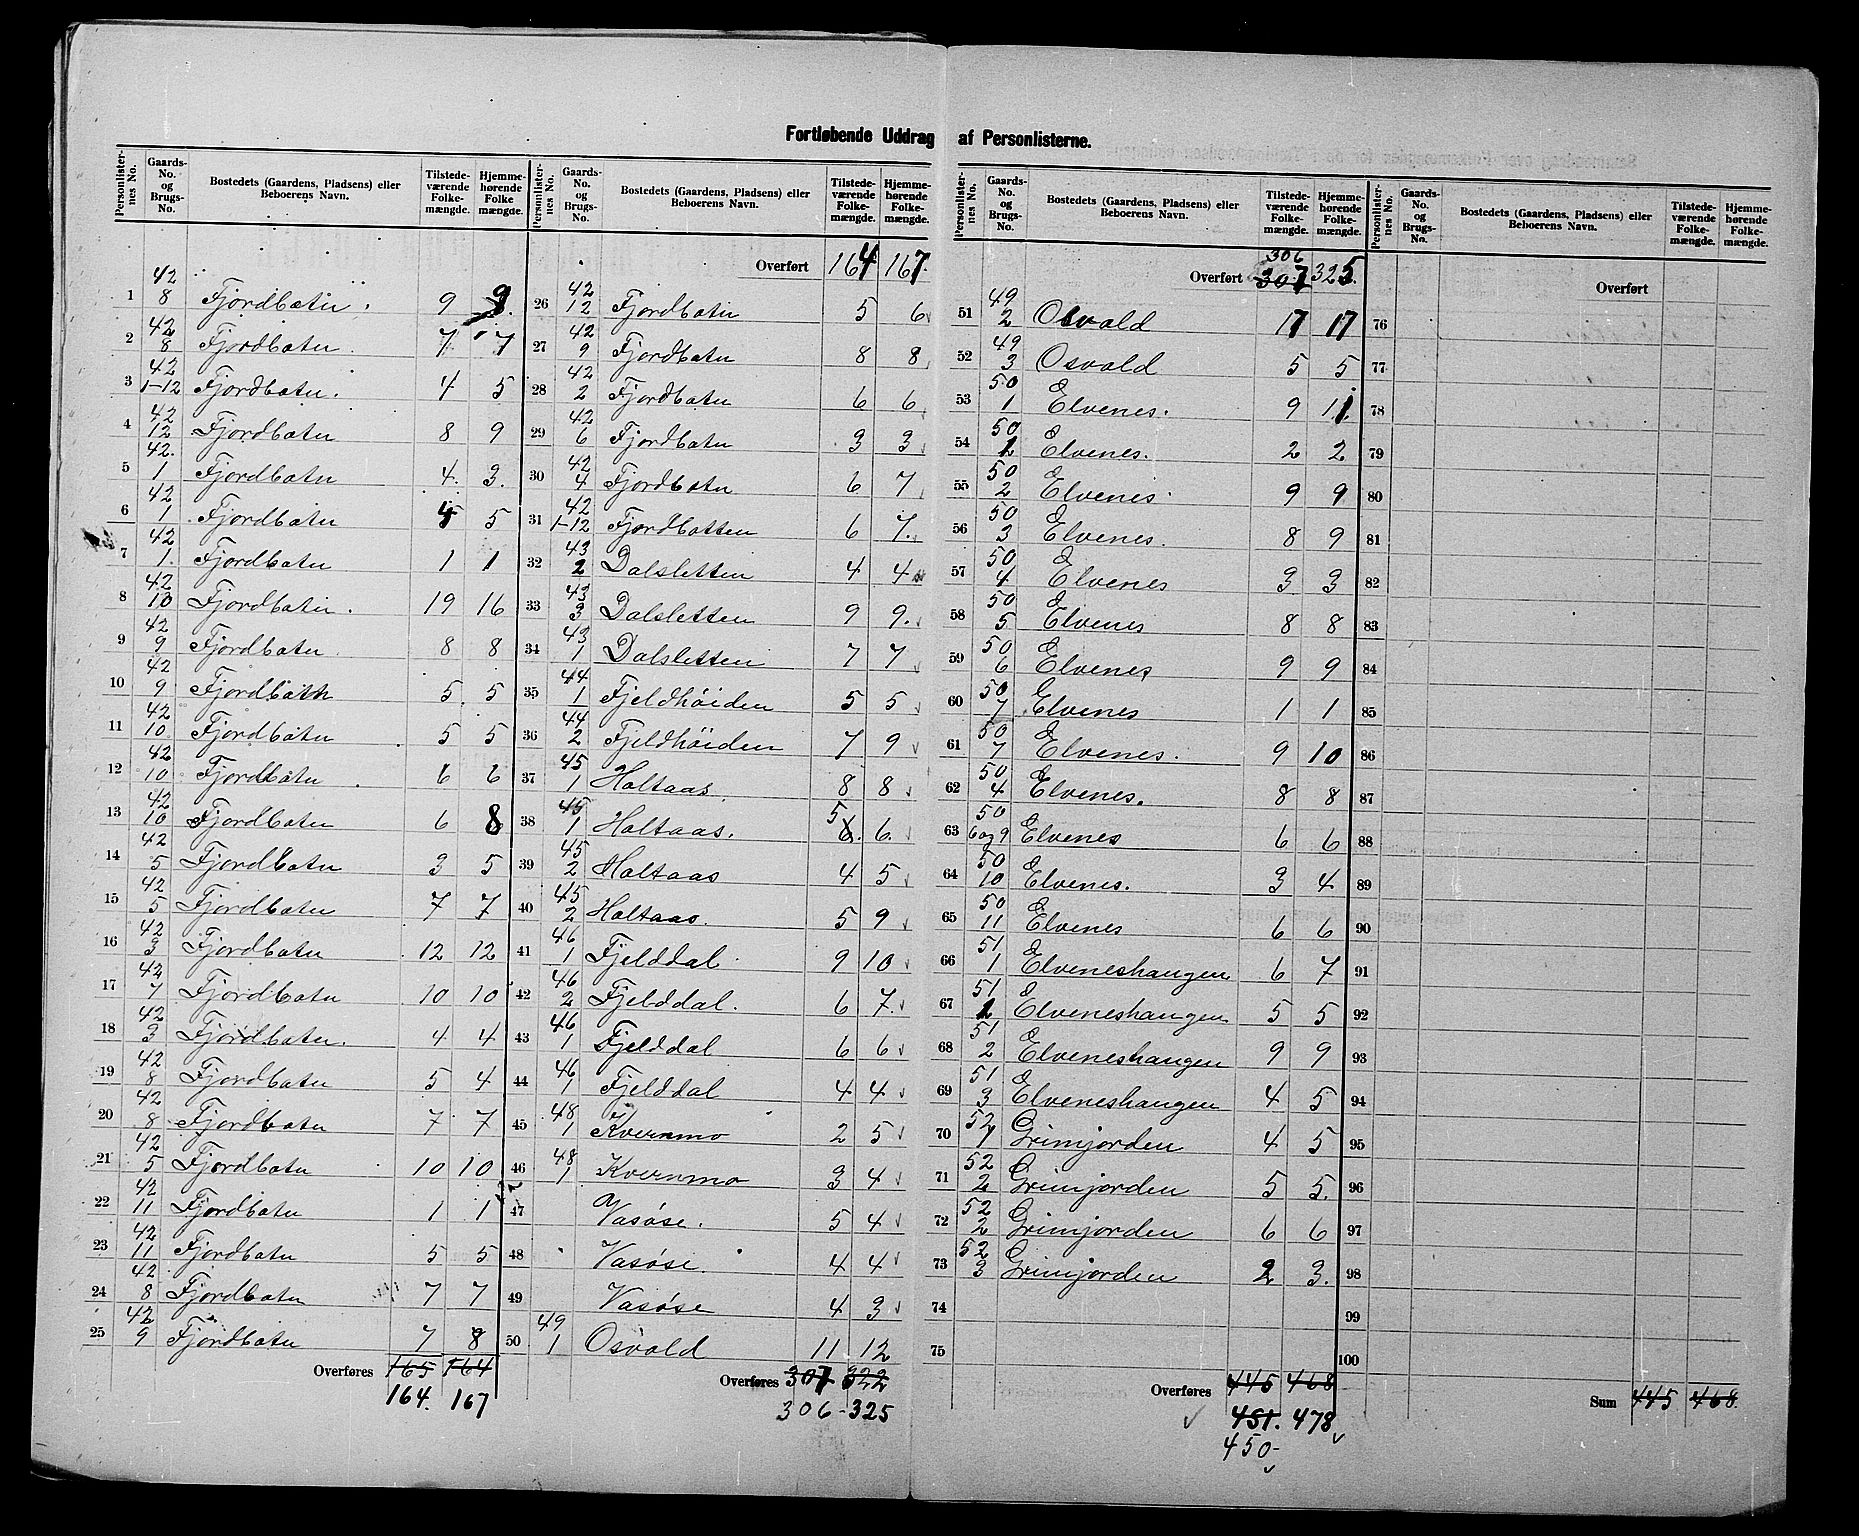 Fortløbende Uddrag af Personlisterne.
Personlister-nes No. | Gaards-No. og Brugs-No. | Bostedets (Gaardens, Pladsens) eller Beboerens Navn. | Tilstede-værende Folke-mængde. | Hjemme-hørende Folke mængde.
1 | 42 8 | Fjordbotn. | 9 | 9
2 | 42 8 | Fjordbotn. | 7 | 7
3 | 42 1-12 | Fjordbotn. | 4 | 5
4 | 42 12 | Fjordbotn | 8 | 9
5 | 42. 1 | Fjordbotn | 4. | 3.
6 | 42 1 | Fjordbotn | | 5
7 | 42 1. | Fjordbotn | 1 | 1
8 | 42 10 | Fjordbotn. | 19 | 16
9 | 42 9 | Fjordbotn. | 8 | 8
10 | 42 9 | Fjordbotn | 5. | 5
11 | 42 10 | Fjordbotn | 5 | 5
12 | 42 10 | Fjordbotn. | 6 | 6
13 | 42 10 | Fjordbotn | 6 | 8
14 | 42 5 | Fjordbotn | 3 | 5
15 | 42 5 | Fjordbotn | 7 | 7
16 | 42 3 | Fjordbotn | 12 | 12
17 | 42 7 | Fjordbotn | 10 | 10
18 | 42 3 | Fjordbotn. | 4 | 4
19 | 42 8 | Fjordbotn | 5 | 4
20 | 42 8 | Fjordbotn | 7 | 7
21 | 42 5 | Fjordbotn | 10 | 10
22 | 42 11 | Fjordbotn | 1 | 1
23 | 42 11 | Fjordbotn | 5 | 5
24 | 42 8 | Fjordbotn | 7 | 7
25 | 42 9 | Fjordbotn | 7 | 8
Overføres 165 164
164. 167
Personlister-nes No. | Gaards-No. og Brugs-No. | Bostedets (Gaardens, Pladsens) eller Beboerens Navn. | Tilstede-værende Folke-mængde. | Hjemme-hørende Folke-mængde.
Overført 164 167.
26 | 42 12 | Fjordbotn | 5 | 6
27 | 42 9 | Fjordbotn | 8 | 8
28 | 42 2 | Fjordbotn | 6 | 6
29 | 42 6 | Fjordbotn | 3 | 3
30 | 42 4 | Fjordbotn | 6 | 7
31 | 42 1-12 | Fjordbotten | 6 | 7.
32 | 43 2 | Dalsletten | 4 | 4
33 | 43 3 | Dalsletten | 9 | 9.
34 | 43 1 | Dalsletten | 7 | 7
35 | 44 1 | Fjeldhöiden | 5 | 5
36 | 44 2 | Fjeldhöiden | 7 | 9
37 | 45 1 | Holtaas. | 8 | 8
38 | 45 1 | Holtaas. | 5 6. | 6.
39 | 45 2 | Holtaas | 4 | 5
40 | 45 2 | Holtaas. | 5 | 9
41 | 46 1 | Fjelddal. | 9 | 10
42 | 46 2 | Fjelddal. | 6 | 7.
43 | 46 1 | Fjelddal | 6 | 6
44 | 46 1 | Fjelddal | 4 | 4
45 | 48 1 | Kvernmo | 2 | 5
46 | 48 1 | Kvernmo | 3 | 4
47 | Vasøse. | 5 | 4
48 | Vasøse. | 4 | 4
49 | Vasøse | 4 | 3
50 | 49 1 | Osvald | 11 | 12
Overføres 307 322
306-325
Personlister-nes No. | Gaards-No. og Brugs-No. | Bostedets (Gaardens, Pladsens) eller Beboerens Navn. | Tilstede-værende Folke-mængde. | Hjemme-hørende Folke-mængde.
306
Overført 307 325.
51 | 49 2 | Osvald | 17 | 17
52 | 49 3 | Osvald | 5 | 5
53 | 50 1 | Elvenes. | 9 | 11.
54 | 50 | Elvenes. | 2 | 2
55 | 50 2 | Elvenes. | 9 | 9
56 | 50 3 | Elvenes. | 8 | 9
57 | 50 4 | Elvenes | 3 | 3
58 | 50 5 | Elvenes | 8 | 8
59 | 50 6 | Elvenes | 9 | 9
60 | 50 7 | Elvenes | 1 | 1
61 | 50 7 | Elvenes. | 9 | 10
62 | 50 4 | Elvenes. | 8 | 8
63 | 50 6 og 9 | Elvenes | 6 | 6
64 | 50 10 | Elvenes. | 3 | 4
65 | 50 11 | Elvenes | 6 | 6
66 | 51 1 | Elveneshaugen | 6 | 7
67 | 51 | Elveneshaugen | 5 | 5
68 | 51 2 | Elveneshaugen | 9 | 9
69 | 51 3 | Elveneshaugen | 4 | 5
70 | 52 1 | Grimjorden | 4 | 5
71 | 52 2 | Grimjorden | 5 | 5.
72 | 52 2 | Grimjorden | 6 | 6
73 | 52 3 | Grimjorden | 2 | 3.
74
75
Overføres 445 468
451. 478
450-
Personlister-nes No. | Gaards-No. og Brugs-No. | Bostedets (Gaardens, Pladsens) eller Beboerens Navn. | Tilstede-værende Folke-mængde. | Hjemme-hørende Folke-mængde.
Overført
76
77
78
79
80
81
82
83
84
85
86
87
88
89
90
91
92
93
94
95
96
97
98
99
100
Sum 445 468.